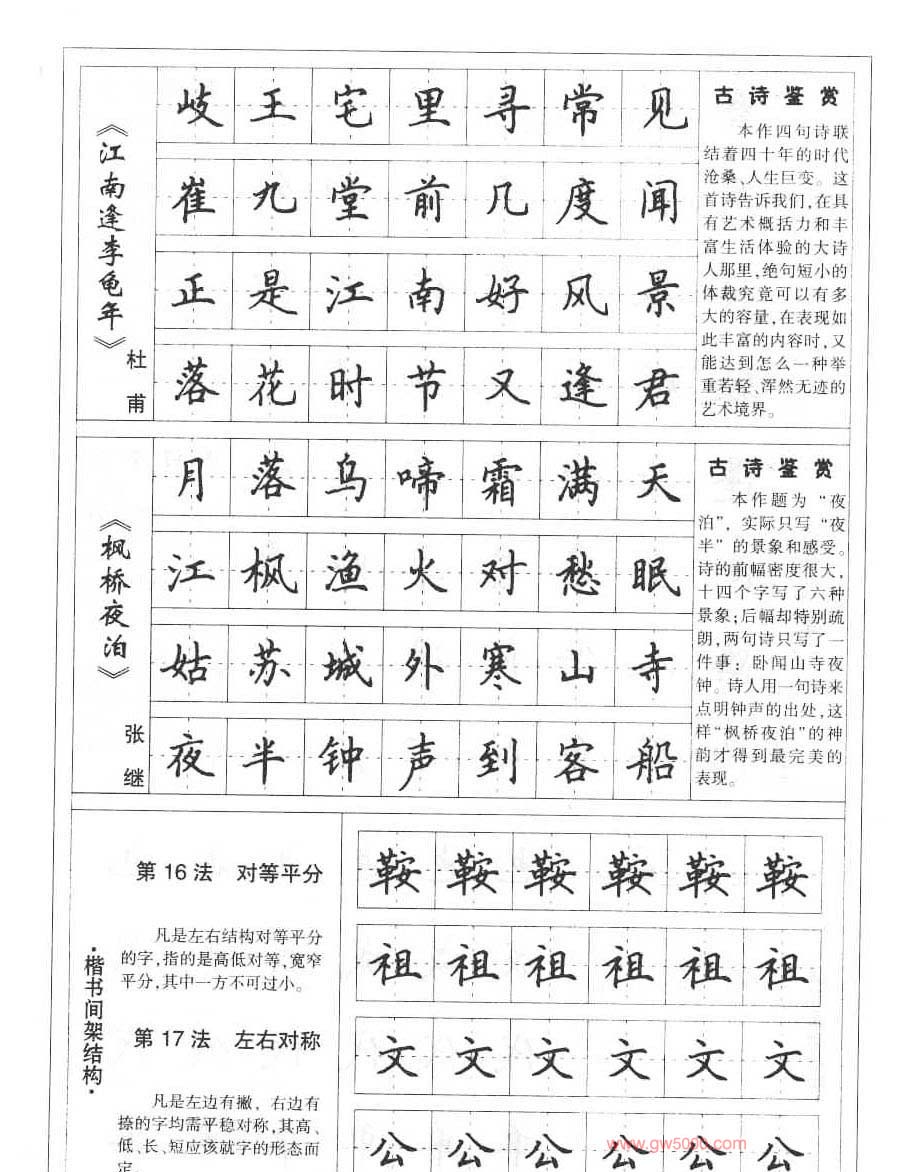 《江南逢李龟年》
杜甫
岐王宅里寻常见
崔九堂前几度闻
正是江南好风景
落花时节又逢君
古诗鉴赏
本作四句诗联
结着四十年的时代
沧桑、人生巨变。这
首诗告诉我们,在具
有艺术概括力和丰
富生活体验的大诗
人那里,绝句短小的
体裁究竟可以有多
大的容量,在表现如
此丰富的内容时,又
能达到怎么一种举
重若轻、浑然无迹的
艺术境界。
《枫桥夜泊》
张继
月落乌啼霜满天
江枫渔火对愁眠
姑苏城外寒山寺
夜半钟声到客船
古诗鉴赏
本作题为“夜
泊”,实际只写“夜
半”的景象和感受。
诗的前幅密度很大,
十四个字写了六种
景象;后幅却特别疏
朗,两句诗只写了一
件事:卧闻山寺夜
钟。诗人用一句诗来
点明钟声的出处,这
样“枫桥夜泊”的神
韵才得到最完美的
表现。
·楷书间架结构·
第16法 对等平分
凡是左右结构对等平分
的字,指的是高低对等,宽窄
平分,其中一方不可过小。
第17法 左右对称
凡是左边有撇,右边有
捺的字均需平稳对称,其高、
低、长、短应该就字的形态而
定。
鞍鞍鞍鞍鞍鞍
祖祖祖祖祖祖
文文文文文文
公公公公公公
www.gw5000.com